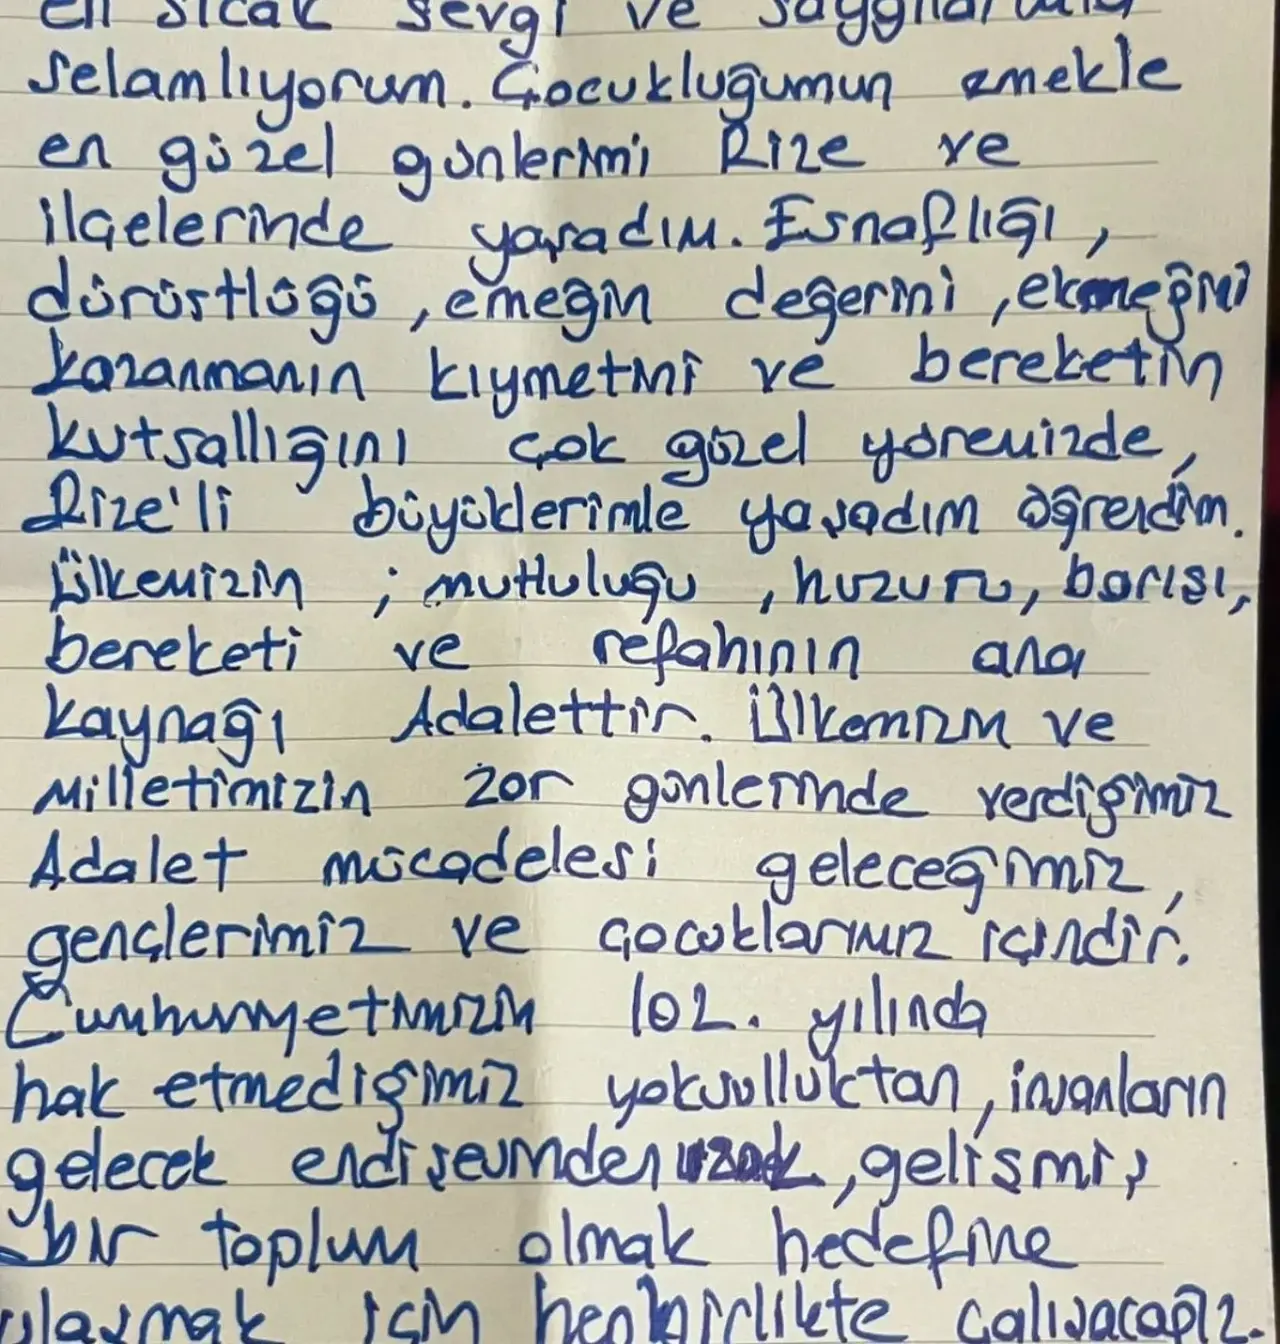 en sıcak sevgi ve saygılarımla
selamlıyorum. Çocukluğumun emekle
en güzel günlerimi Rize ve
ilçelerinde yaşadım. Esnaflığı,
dürüstlüğü, emeğin değerini, ekmeğini
kazanmanın kıymetini ve bereketin
kutsallığını çok güzel yöremizde,
Rize'li büyüklerimle yaşadım öğrendim.
Ülkemizin ; mutluluğu, huzuru, barışı,
bereketi ve refahının ana
kaynağı Adalettir. Ülkemizin ve
Milletimizin zor günlerinde verdiğimiz
Adalet mücadelesi geleceğimiz,
gençlerimiz ve çocuklarımız içindir.
Cumhuriyetimizin 102. yılında
hak etmediğimiz yoksulluktan, insanların
gelecek endişesinden uzak, gelişmiş
bir toplum olmak hedefine
ulaşmak için hep birlikte çalışacağız.